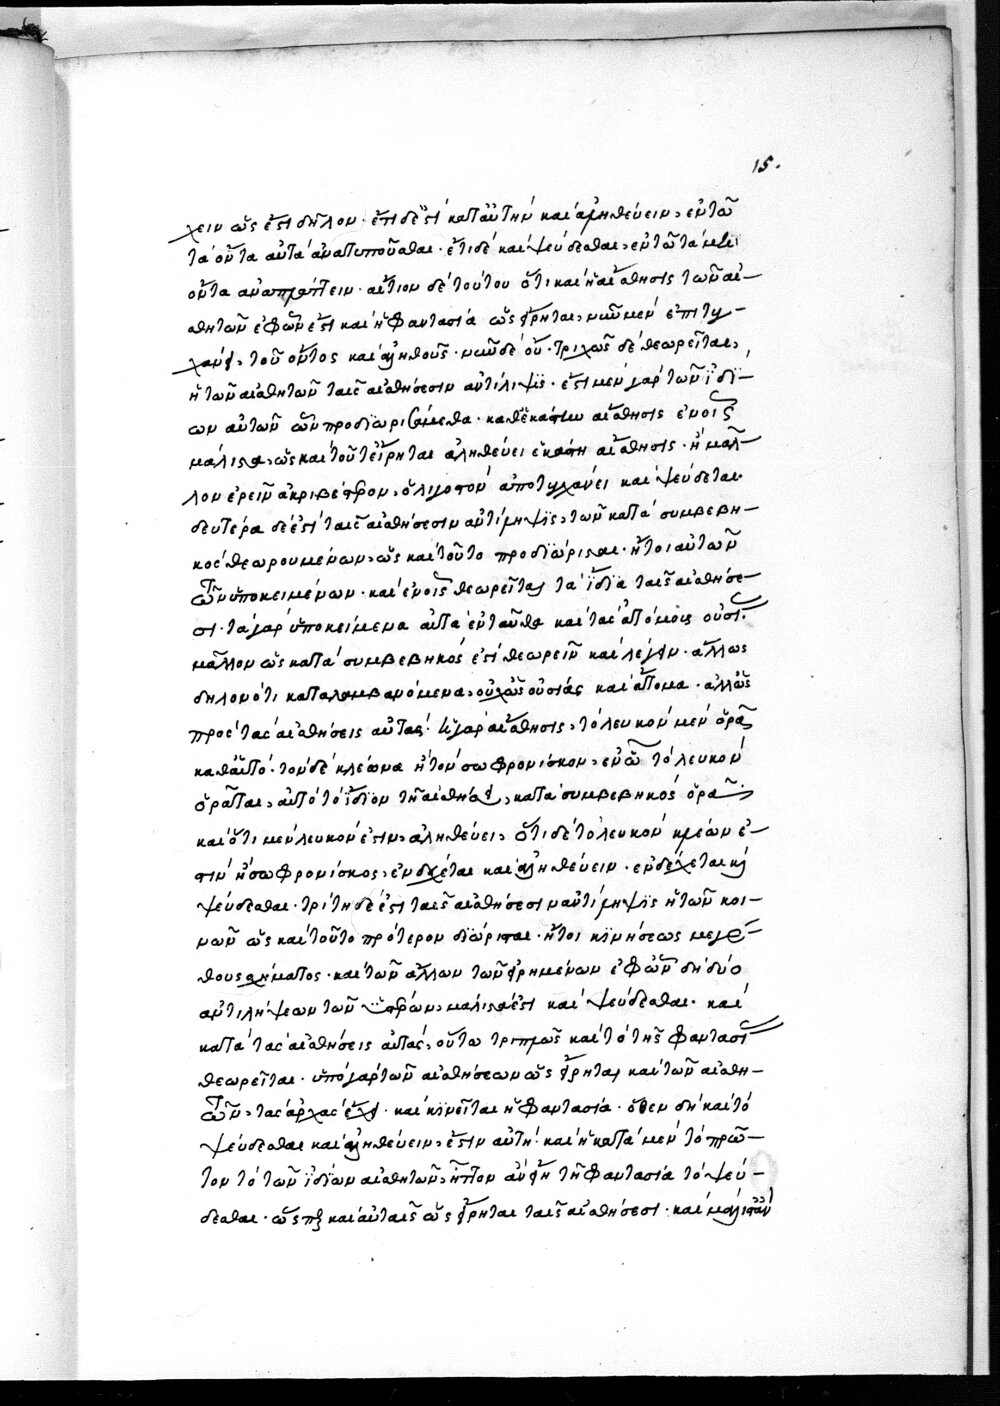 15.
χειν ὥς ἐστι δῆλον· ἔτι δέ ἐστι κατ' αὐτὴν καὶ ἀληθεύειν, ἐν τῷ
τὰ ὄντα αὐτὰ ἀνατυποῦσθαι· ἔτι δὲ καὶ ψεύδεσθαι, ἐν τῷ τὰ μὴ
ὄντα ἀναπλάττειν· αἴτιον δὲ τούτου ὅτι καὶ ἡ αἴσθησις τῶν αἰ–
σθητῶν ἐφ' ὧν ἐστι καὶ ἡ φαντασία ὡς εἴρηται, νῦν μὲν ἐπιτυ–
χάνει τοῦ ὄντος καὶ ἀληθοῦς· νῦν δὲ οὔ· τριχῶς δὲ θεωρεῖται,
ἡ τῶν αἰσθητῶν ταῖς αἰσθήσεσιν ἀντίληψις· ἔστι μὲν γὰρ τῶν ἰδί–
ων αὐτῶν ὧν προδιωρισάμεθα· καθ' ἑκάστην αἴσθησις ἐν οἷς
μάλιστα, ὡς καὶ τοῦτ' εἴρηται ἀληθεύει ἑκάστη αἴσθησις· ἢ μᾶλ–
λον ἐρεῖν ἀκριβέστερον, ὀλιγοστὸν ἀποτυγχάνει καὶ ψεύδεται·
δευτέρα δέ ἐστι ταῖς αἰσθήσεσιν ἀντίληψις, τῶν κατὰ συμβεβη–
κὸς θεωρουμένων, ὡς καὶ τοῦτο προδιώρισται· ἤτοι αὐτῶν
τῶν ὑποκειμένων· καὶ ἐν οἷς θεωρεῖται τὰ ἴδια ταῖς αἰσθήσε–
σι· τὰ γὰρ ὑποκείμενα αὐτὰ ἐνταῦθα καὶ τὰς ἀτόμους οὐσίας
μᾶλλον ὡς κατὰ συμβεβηκός ἐστι θεωρεῖν καὶ λέγειν· ἄλλως
δηλονότι καταλαμβανόμενα, οὐχ ὡς οὐσίας καὶ ἄτομα· ἀλλ' ὡς
πρὸς τὰς αἰσθήσεις αὐτάς· ἡ γὰρ αἴσθησις, τὸ λευκὸν μὲν ὁρᾷ
καθ' αὑτό· τὸν δὲ κλέωνα ἢ τὸν σωφρονίσκον, ἐν ᾧ τὸ λευκὸν
ὁρᾶται, αὐτὸ τὸ ἴδιον τῇ αἰσθήσει, κατὰ συμβεβηκὸς ὁρᾷ·
καὶ ὅτι μὲν λευκόν ἐστιν, ἀληθεύει, ὅτι δὲ τὸ λευκὸν κλέων ἐ–
στὶν ἢ σωφρονίσκος, ἐνδέχεται καὶ ἀληθεύειν· ἐνδέχεται καὶ
ψεύδεσθαι· τρίτη δέ ἐστι ταῖς αἰσθήσεσιν ἀντίληψις ἡ τῶν κοι–
νῶν ὡς καὶ τοῦτο πρότερον διώρισται· ἤτοι κινήσεως μεγέ–
θους σχήματος· καὶ τῶν ἄλλων τῶν εἰρημένων ἐφ' ὧν δὴ δύο
ἀντιλήψεων τῶν ὑστέρων, μάλιστά ἐστι καὶ ψεύδεσθαι· καὶ
κατὰ τὰς αἰσθήσεις αὐτάς, οὕτω τριττῶς καὶ τὸ τῆς φαντασίας
θεωρεῖται· ὑπὸ γὰρ τῶν αἰσθήσεων ὡς εἴρηται καὶ τῶν αἰσθη–
τῶν, τὰς ἀρχὰς ἔχει· καὶ κινεῖται ἡ φαντασία· ὅθεν δὴ καὶ τὸ
ψεύδεσθαι καὶ ἀληθεύειν, ἔστιν αὐτῇ· καὶ ἡ κατὰ μὲν τὸ πρῶ–
τον τὸ τῶν ἰδίων αἰσθητῶν, ἧττον ἂν εἴη τῇ φαντασίᾳ τὸ ψεύ–
δεσθαι· ὥσπερ καὶ αὐταῖς ὡς εἴρηται ταῖς αἰσθήσεσι· καὶ μάλιστ' ἂν